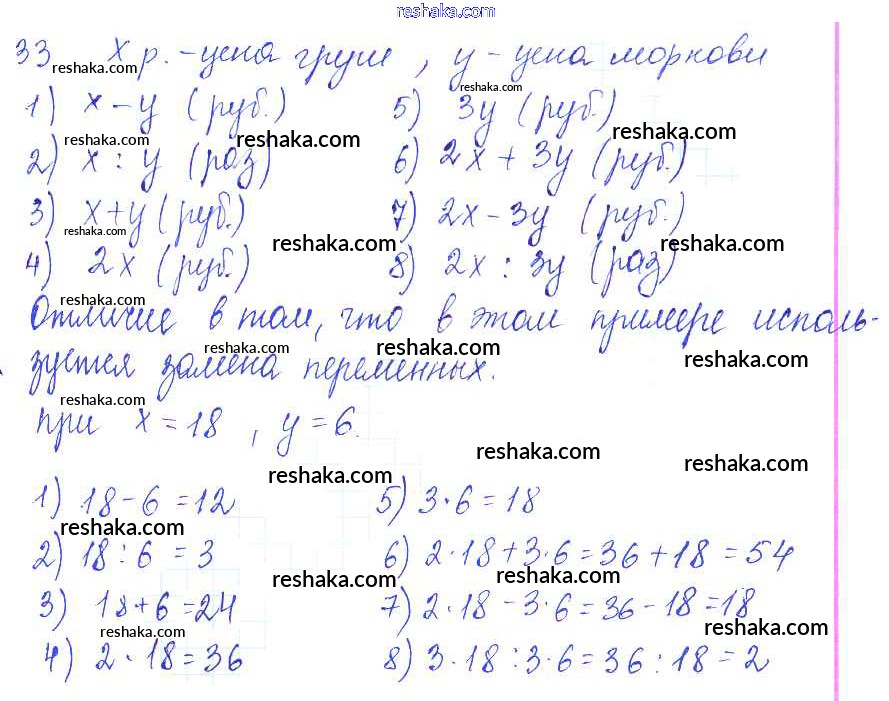 reshaka.com
33 х р. - цена груш, у - цена моркови
reshaka.com reshaka.com
1) х - у (руб.) 5) 3у (руб.)
reshaka.com reshaka.com reshaka.com
2) х : у (раз) 6) 2х + 3у (руб.)
3) х + у (руб.) 7) 2х - 3у (руб.)
reshaka.com reshaka.com reshaka.com
4) 2х (руб.) 8) 2х : 3у (раз)
reshaka.com
Отличие в том, что в этом примере исполь-
reshaka.com reshaka.com reshaka.com
зуется замена переменных.
reshaka.com
при х = 18, у = 6.
reshaka.com reshaka.com reshaka.com
1) 18 - 6 = 12 5) 3 · 6 = 18
reshaka.com
2) 18 : 6 = 3 6) 2 · 18 + 3 · 6 = 36 + 18 = 54
reshaka.com reshaka.com
3) 18 + 6 = 24 7) 2 · 18 - 3 · 6 = 36 - 18 = 18
reshaka.com reshaka.com
4) 2 · 18 = 36 8) 3 · 18 : 3 · 6 = 36 : 18 = 2